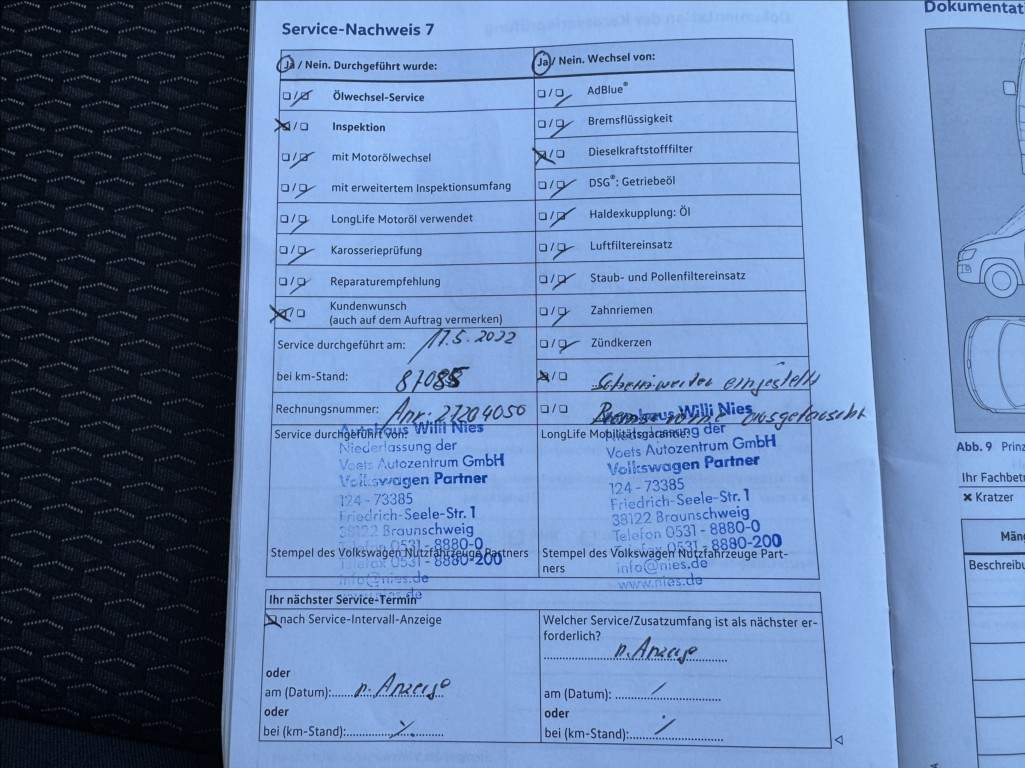 Service-Nachweis 7
Ja / Nein. Durchgeführt wurde:
☐/☐ Ölwechsel-Service
☒/☐ Inspektion
☐/☐ mit Motorölwechsel
☐/☐ mit erweitertem Inspektionsumfang
☐/☐ LongLife Motoröl verwendet
☐/☐ Karosserieprüfung
☐/☐ Reparaturempfehlung
☒/☐ Kundenwunsch
(auch auf dem Auftrag vermerken)
Service durchgeführt am: 17.5.2022
bei km-Stand: 87085
Rechnungsnummer: Ank: 21204050
Service durchgeführt von:
Autohaus Willi Nies
Niederlassung der
Voets Autozentrum GmbH
Volkswagen Partner
124 - 73385
Friedrich-Seele-Str. 1
38122 Braunschweig
Telefon 0531 - 8880-0
Telefax 0531 - 8880-200
info@nies.de
www.nies.de
Stempel des Volkswagen Nutzfahrzeuge Partners
Ja / Nein. Wechsel von:
☐/☐ AdBlue®
☐/☐ Bremsflüssigkeit
☒/☐ Dieselkraftstofffilter
☐/☐ DSG®: Getriebeöl
☐/☐ Haldexkupplung: Öl
☐/☐ Luftfiltereinsatz
☐/☐ Staub- und Pollenfiltereinsatz
☐/☐ Zahnriemen
☐/☐ Zündkerzen
☒/☐ Scheinwerfer eingestellt
☐/☐ ausgetauscht
LongLife Mobilitätsgarantie:
Autohaus Willi Nies
Niederlassung der
Voets Autozentrum GmbH
Volkswagen Partner
124 - 73385
Friedrich-Seele-Str. 1
38122 Braunschweig
Telefon 0531 - 8880-0
Telefax 0531 - 8880-200
info@nies.de
www.nies.de
Stempel des Volkswagen Nutzfahrzeuge Part-
ners
Ihr nächster Service-Termin
☒ nach Service-Intervall-Anzeige
oder
am (Datum): n. Anzeige
oder
bei (km-Stand): ./.
Welcher Service/Zusatzumfang ist als nächster er-
forderlich?
n. Anzeige
am (Datum): /
oder
bei (km-Stand): ./.
Dokumentat
Abb. 9 Prinz
Ihr Fachbet
✖ Kratzer
Män
Beschreibu